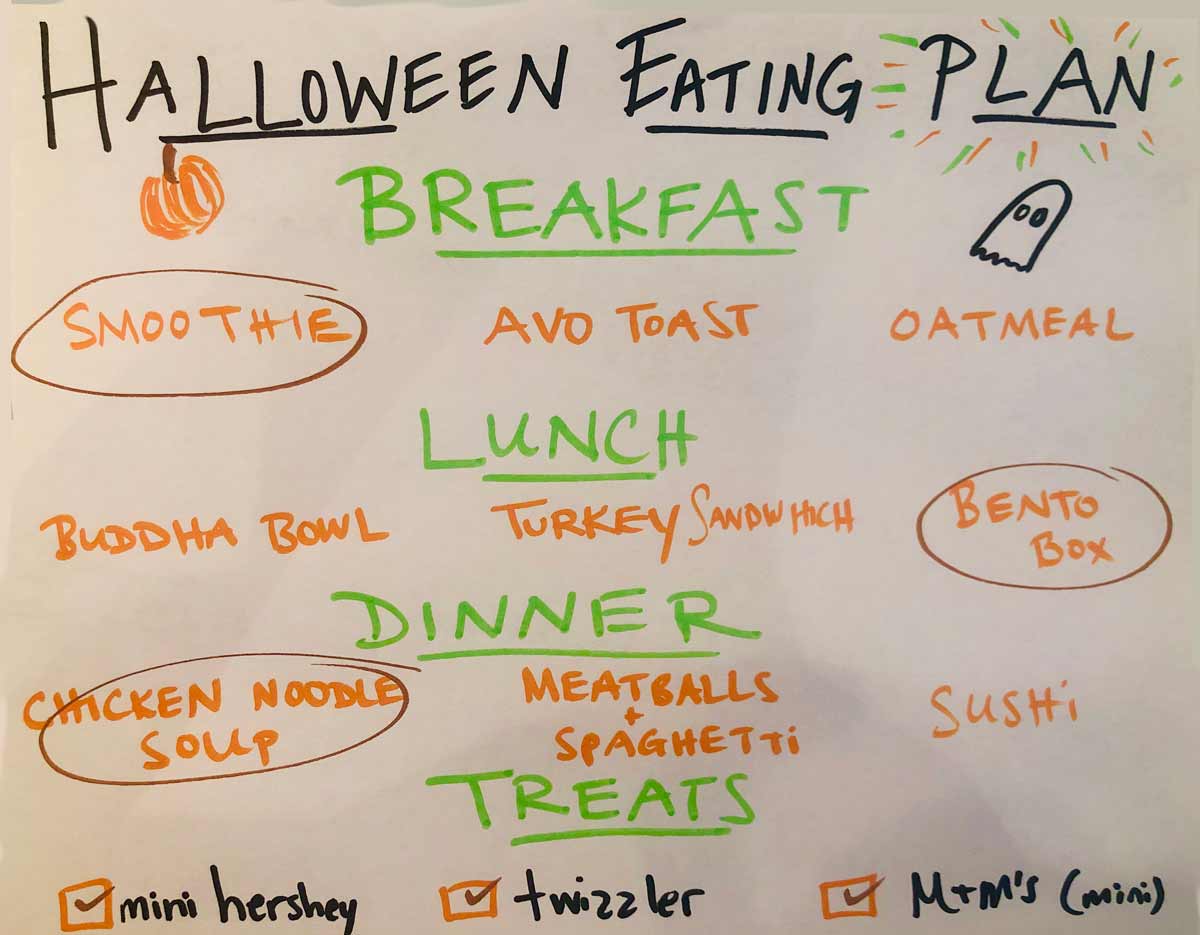 HALLOWEEN EATING PLAN
BREAKFAST
SMOOTHIE AVO TOAST OATMEAL
LUNCH
BUDDHA BOWL TURKEY SANDWHICH BENTO
BOX
DINNER
CHICKEN NOODLE MEATBALLS SUSHi
SOUP + SPAGHETTi
TREATS
mini hershey twizzler M+M's (mini)